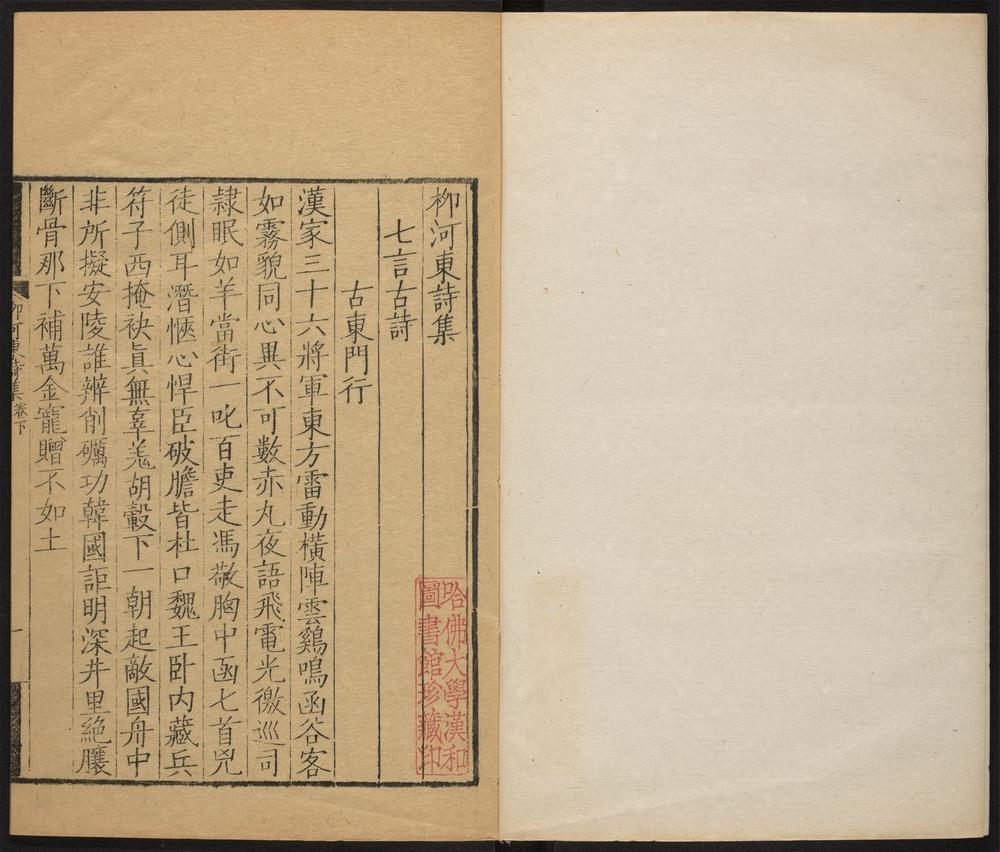 柳河東詩集
七言古詩
古東門行
漢家三十六將軍東方雷動橫陣雲鷄鳴函谷客
如霧貌同心異不可數赤丸夜語飛電光徼巡司
隷眠如羊當街一叱百吏走馮敬胸中函七首兇
徒側耳潛愜心悍臣破膽皆杜口魏王卧内藏兵
符子西掩袂真無辜羗胡轂下一朝起敵國舟中
非所擬安陵誰辨削礪功韓國詎明深井里絶臏
斷骨那下補萬金寵贈不如土
柳河東詩集卷下
一
哈佛大學漢和
圖書館珍藏印